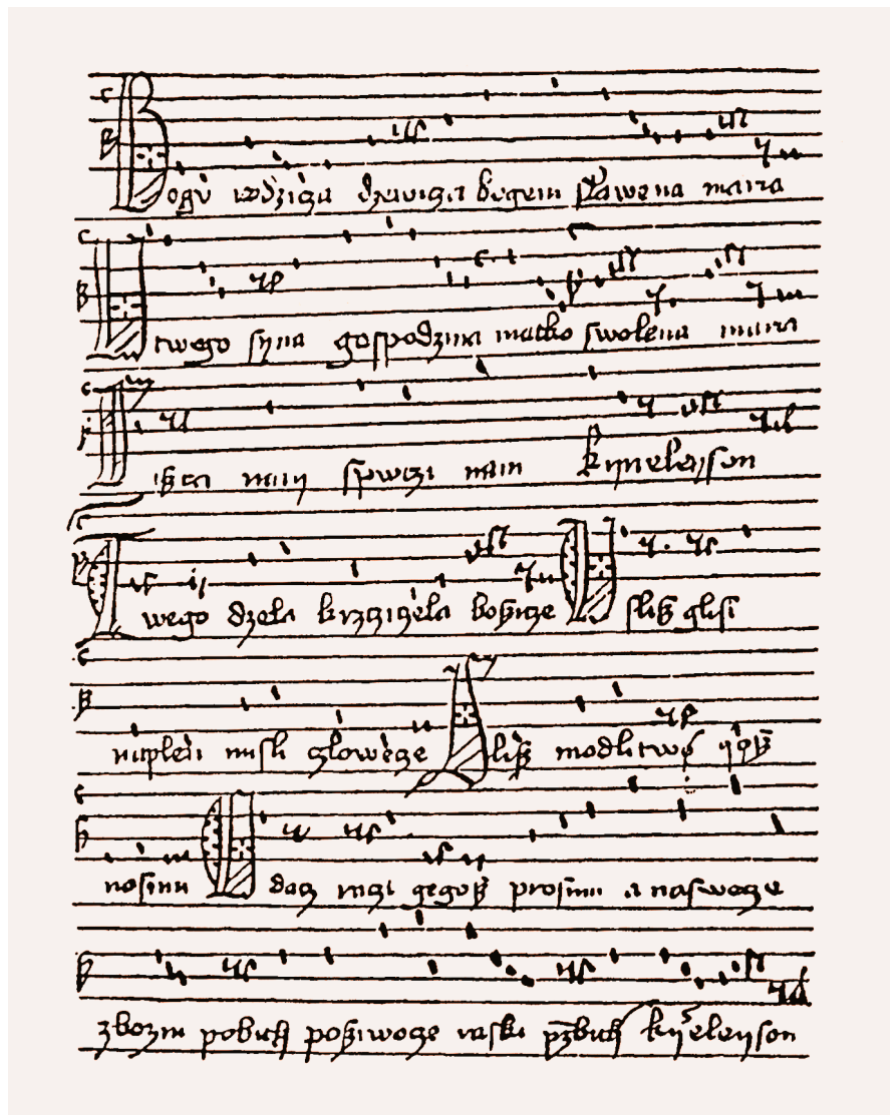 Bogu rodzicza dzewicza bogem slawena maria
twego syna gospodzina matko swolena maria
siszczi nam spwczi nam kyrieleyson
Twego dzela krzcziczela bozicze uslisz glosi
naplen misli czlowecze slisz modlitwo yosz
nosimi Oddacz raczi gegosz prosimi a naswecze
zbozni pobith posziwoce raski przebith kyrieleyson